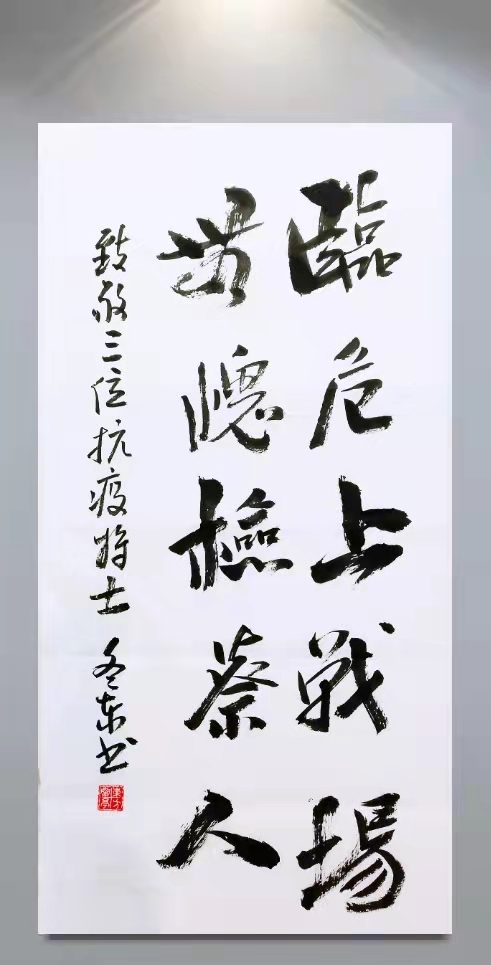 臨危上戰場
無愧檢察人
致敬三位抗疫將士 冬东书